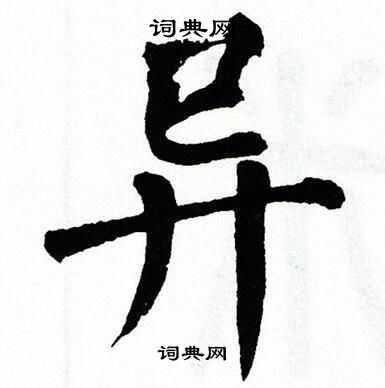 词典网
异
词典网